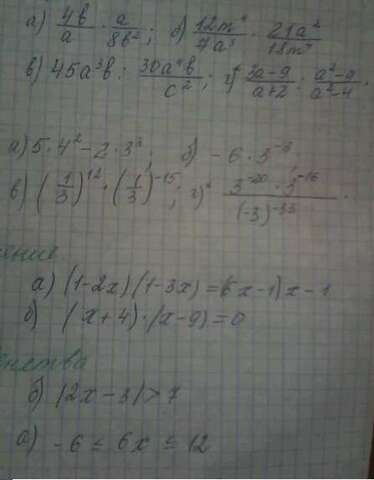 а) 4b/a · a/8b²; б) 12m⁴/7a³ · 21a²/18m⁷
в) 45a³b : 30a⁴b/c²; г) 3a-9/a+2 : a²-9/a²-4.
а) 5·4²-2·3³; б) -6·3⁻³;
в) (1/3)¹²·(1/3)⁻¹⁵; г) 3⁻²⁰·3⁻¹⁶/(-3)⁻³³.
ение
а) (1-2x)(1-3x)=(6x-1)x-1
б) (x+4)·(x-9)=0
енства
б) |2x-3|>7
а) -6≤6x≤12